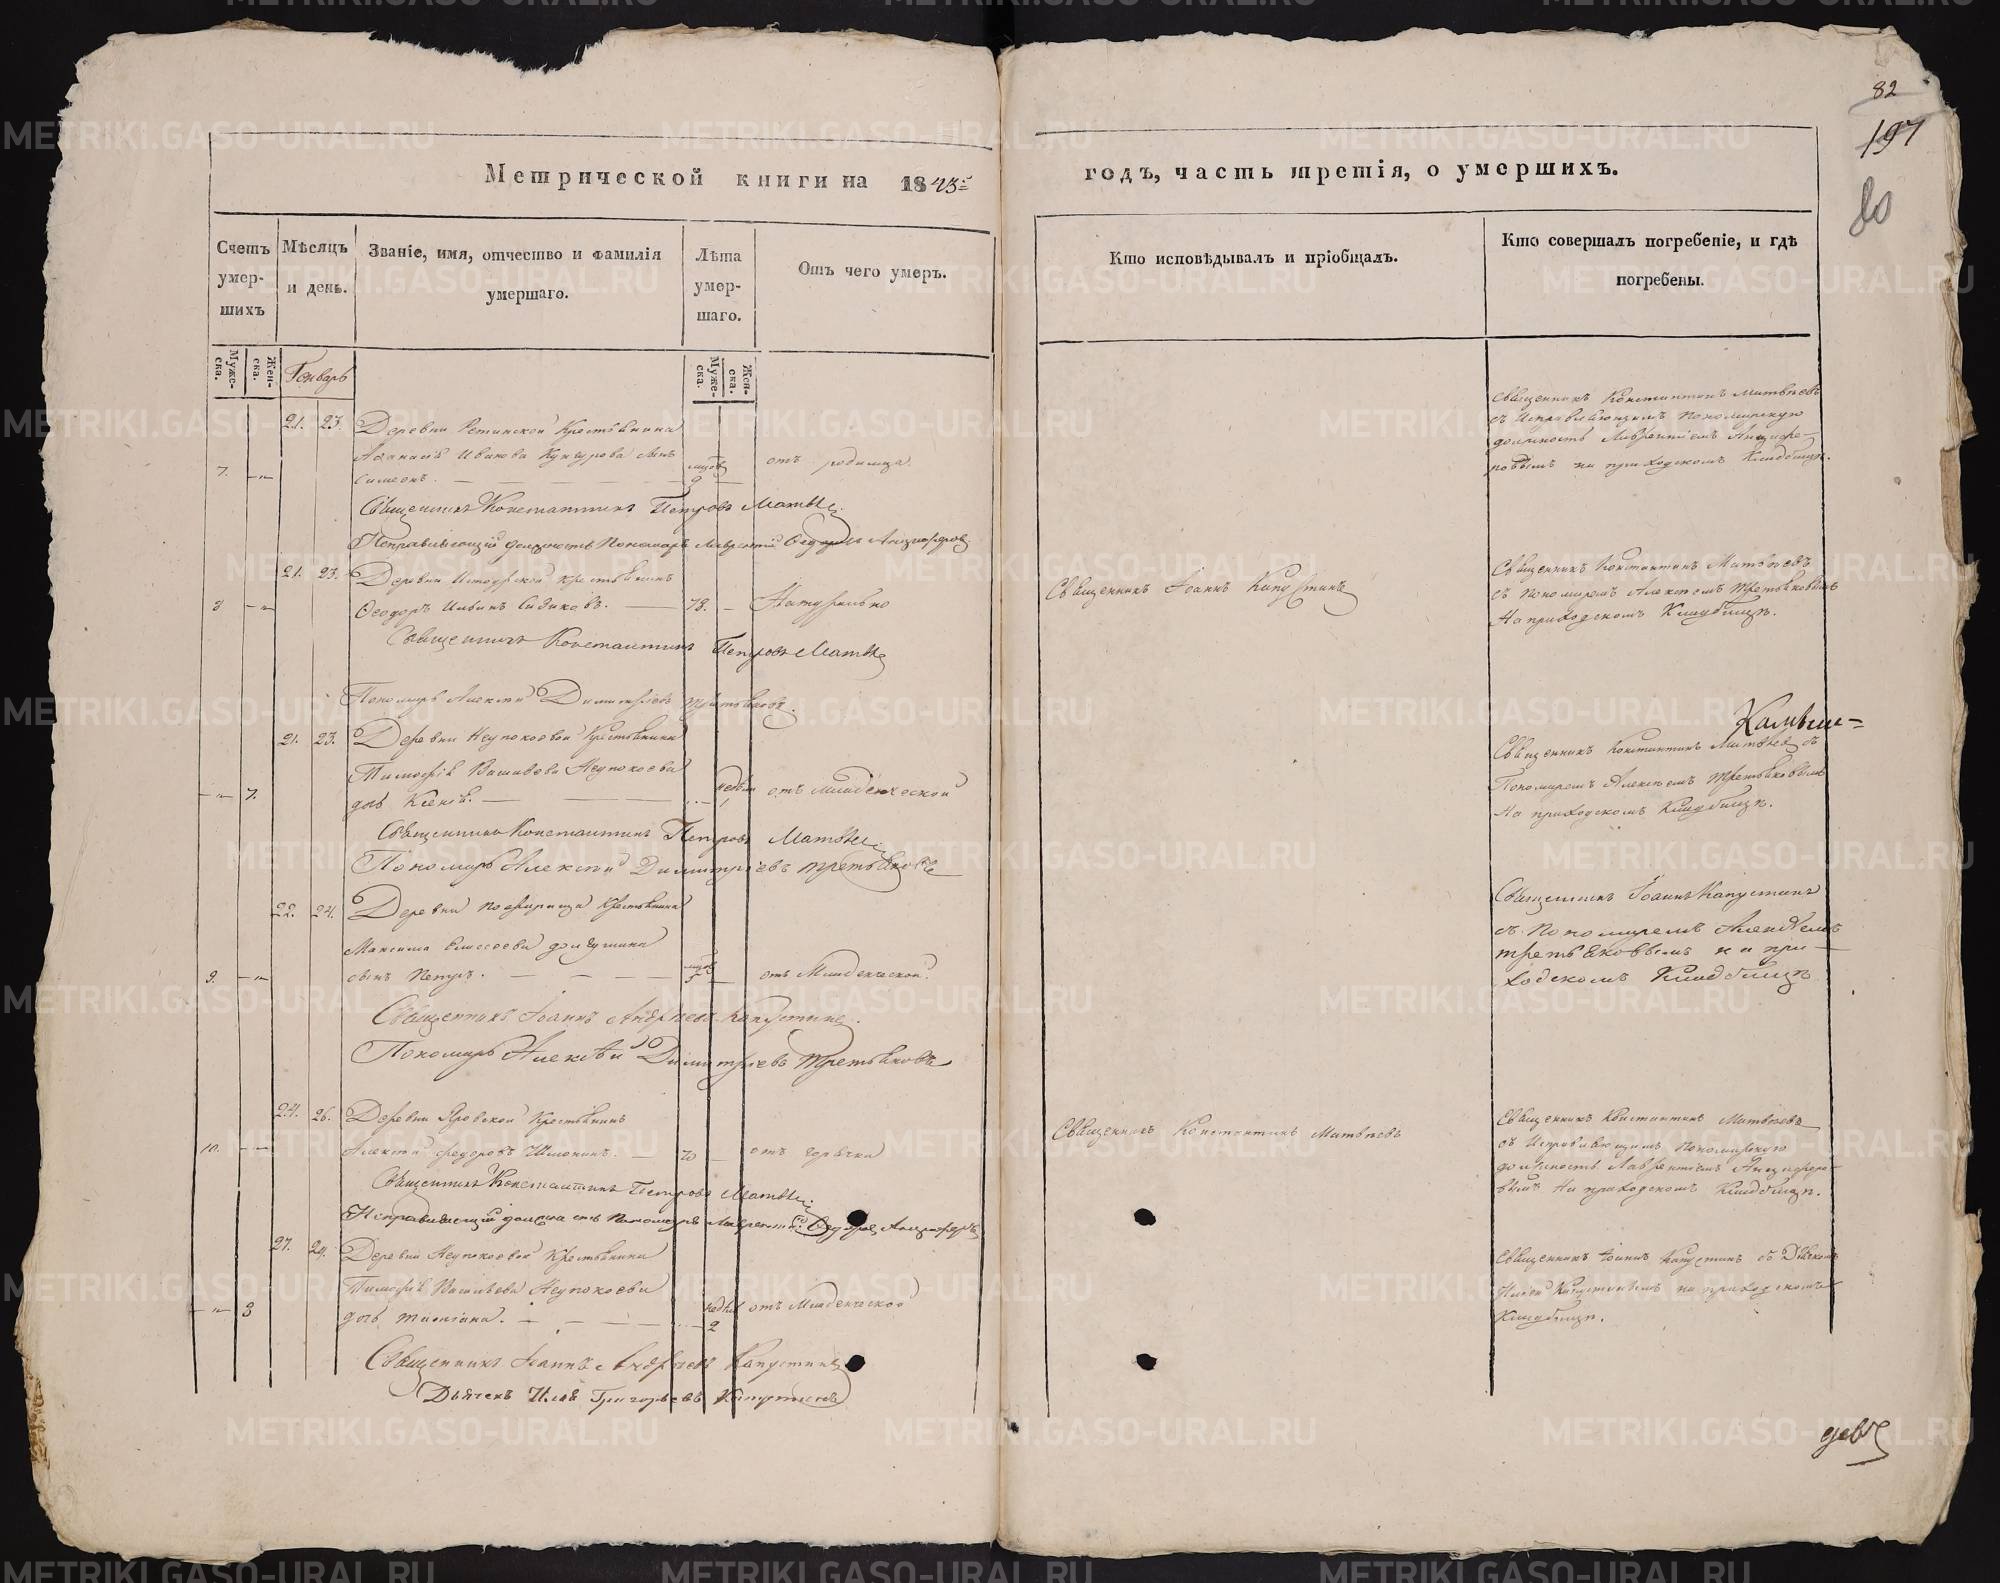 82
197
80
Метрической книги на 1843й
годъ, часть третія, о умершихъ.
Счетъ умер-шихъ
Мѣсяцъ и день.
Званіе, имя, отчество и фамилія умершаго.
Лѣта умер-шаго.
Отъ чего умеръ.
Кто исповѣдывалъ и пріобщалъ.
Кто совершалъ погребеніе, и гдѣ погребены.
Муже-ска.
Жен-ска.
Генварь
Муже-ска.
Жен-ска.
21. 23. Деревни Крестьянина
7. Аѳанасія Иванова сынъ
Симеонъ. 9 отъ родимца.
Священникъ Константинъ Матвѣевъ
съ Исправляющимъ Пономарскую
должность Лаврентіемъ Анцифе-
ровымъ на приходскомъ Кладбищѣ.
Священникъ Константинъ Петровъ Матвѣевъ
Исправляющій должность Пономаря Лаврентій Ѳедоровъ Анцыферовъ
21. 23. Деревни крестьянинъ
8 Ѳеодоръ 78. Натурально
Священникъ Іоаннъ Капустинъ
Священникъ Константинъ Матвѣевъ
съ Пономаремъ Алексѣемъ Третьяковымъ
На приходскомъ Кладбищѣ.
Священникъ Константинъ Петровъ Матвѣевъ
Пономарь Алексѣй Димитріевъ Третьяковъ.
21. 23. Деревни Неупокоевой Крестьянина
Тимофѣя Неупокоева
7. дочь Ксенія. недѣли 1 отъ Младенческой
Священникъ Константинъ Матвѣевъ съ
Пономаремъ Алексѣемъ Третьяковымъ
На приходскомъ Кладбищѣ.
Священникъ Константинъ Петровъ Матвѣевъ
Пономарь Алексѣй Димитріевъ Третьяковъ
22. 24. Деревни Крестьянина
Максима Елисеева
9. сынъ Петръ. отъ Младенческой.
Священникъ Іоаннъ Капустинъ
съ Пономаремъ Алексѣемъ
Третьяковымъ на при-
ходскомъ Кладбищѣ
Священникъ Іоаннъ Андреевъ Капустинъ.
Пономарь Алексѣй Димитріевъ Третьяковъ
24. 26. Деревни Яровской Крестьянинъ
10. Алексѣй Федоровъ 70 отъ горячки
Священникъ Константинъ Матвѣевъ
Священникъ Константинъ Матвѣевъ
съ Исправляющимъ Пономарскую
должность Лаврентіемъ Анцыферо-
вымъ На приходскомъ Кладбищѣ.
Священникъ Константинъ Петровъ Матвѣевъ
Исправляющій должность Пономаря Лаврентій Ѳедоровъ Анцыферовъ
27. 29. Деревни Неупокоевой Крестьянина
Тимофѣя Васильева Неупокоева
8 дочь Татіана. недѣли 2 отъ Младенческой
Священникъ Іоаннъ Капустинъ съ Дьячкомъ
Ильей Капустинымъ на приходскомъ
Кладбищѣ.
Священникъ Іоаннъ Андреевъ Капустинъ
Дьячекъ Илья Григорьевъ Капустинъ
METRIKI.GASO-URAL.RU